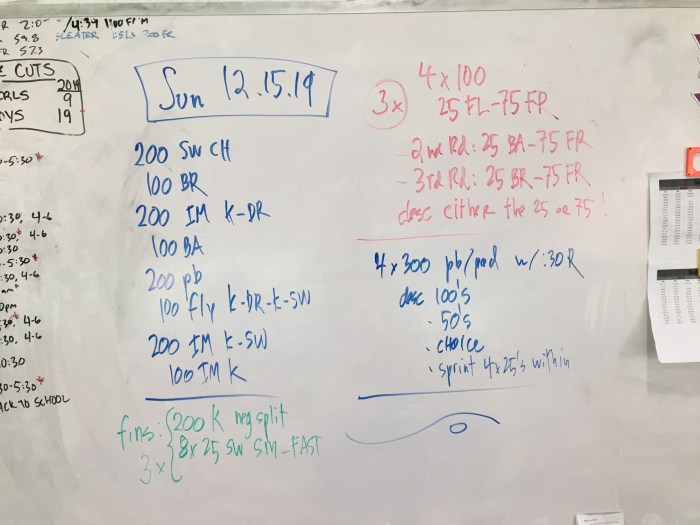 2:0
/4:39 1100 FR M
59.8
SLEATER
300 FR
57.3
CUTS
2019
9
19
-5:30*
:30, 4-6
:30* 4-6
:30
-5:30*
:30, 4-6
am*
0pm
:30* 4-6
:30, 4-6
0:30
30-5:30*
ACK TO SCHOOL
Sun 12.15.19
200 SW CH
100 BR
200 IM K-DR
100 BA
200 pb
100 fly K-DR-K-SW
200 IM K-SW
100 IM K
fins: 200 K neg split
3x 8x25 SW SM-FAST
4x100
3x 25 FL-75 FR
- 2nd Rd: 25 BA-75 FR
- 3rd Rd: 25 BR-75 FR
desc either the 25 or 75!
4x300 pb/pad w/:30R
desc 100's
· 50's
· CHOICE
· sprint 4x25's within